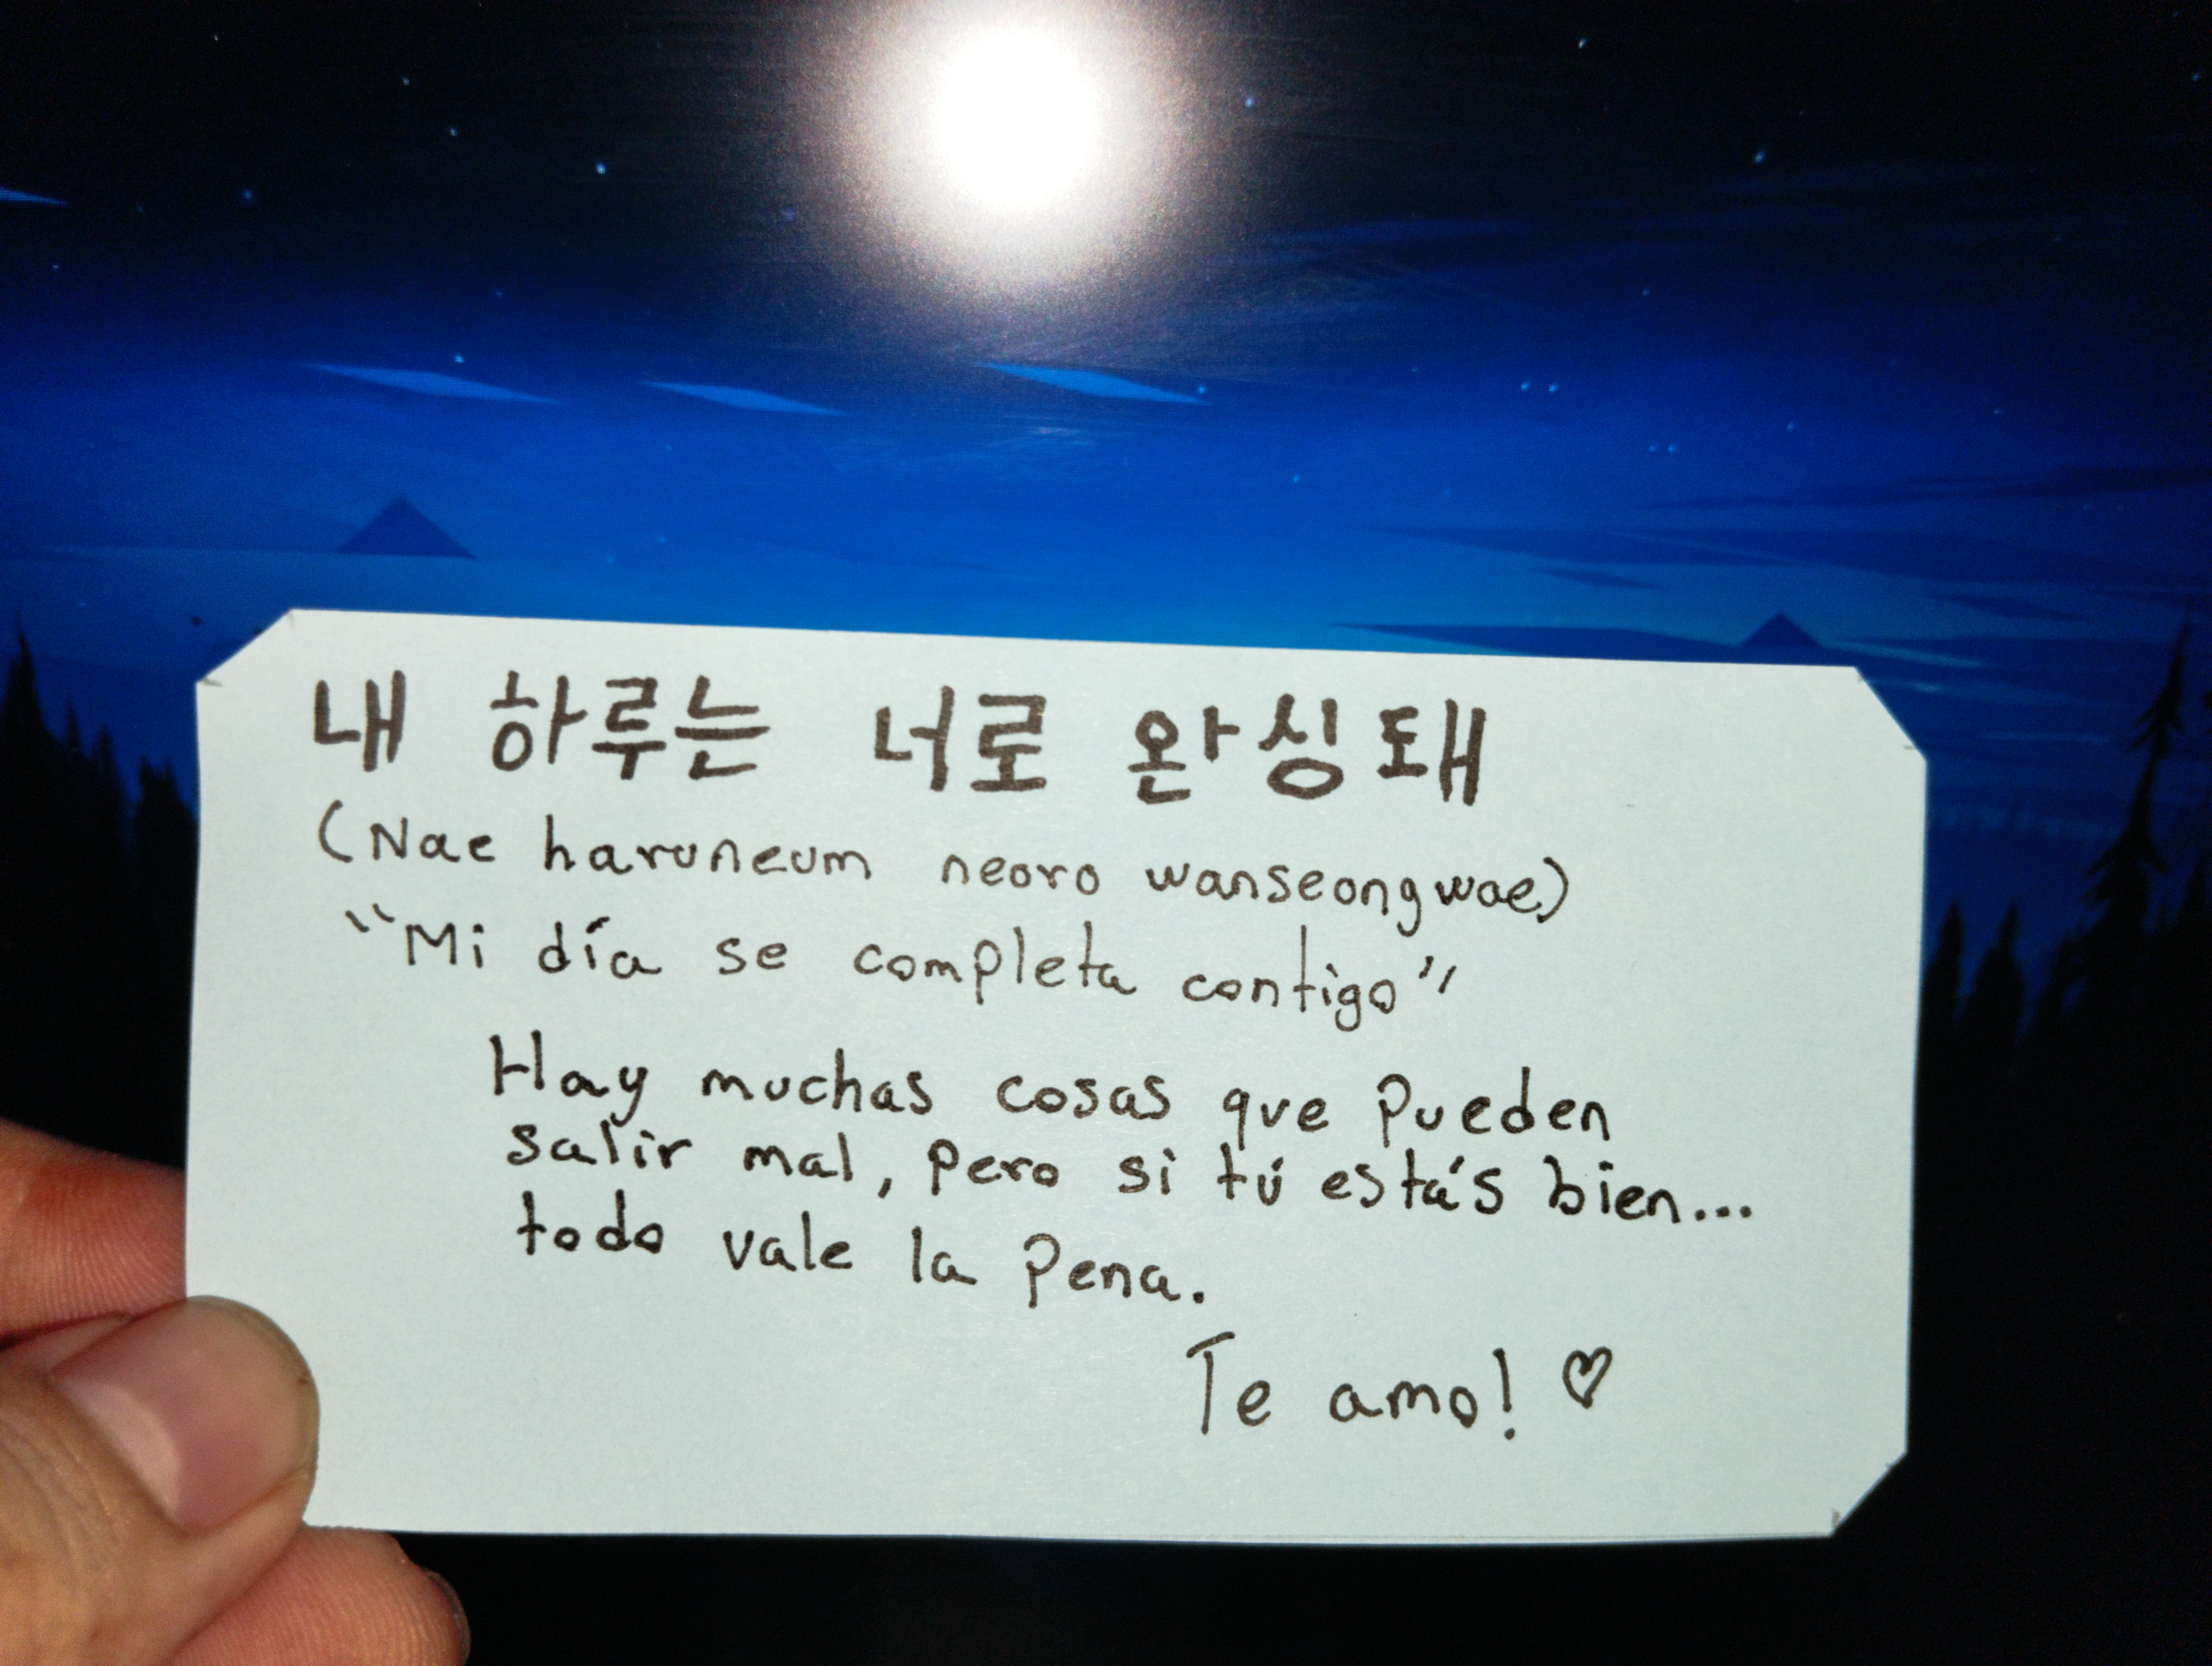 내 하루는 너로 완싱돼
(Nae haruneum neoro wanseongwae)
"Mi día se completa contigo"
Hay muchas cosas que pueden
salir mal, pero si tú estás bien...
todo vale la pena.
Te amo! ♡